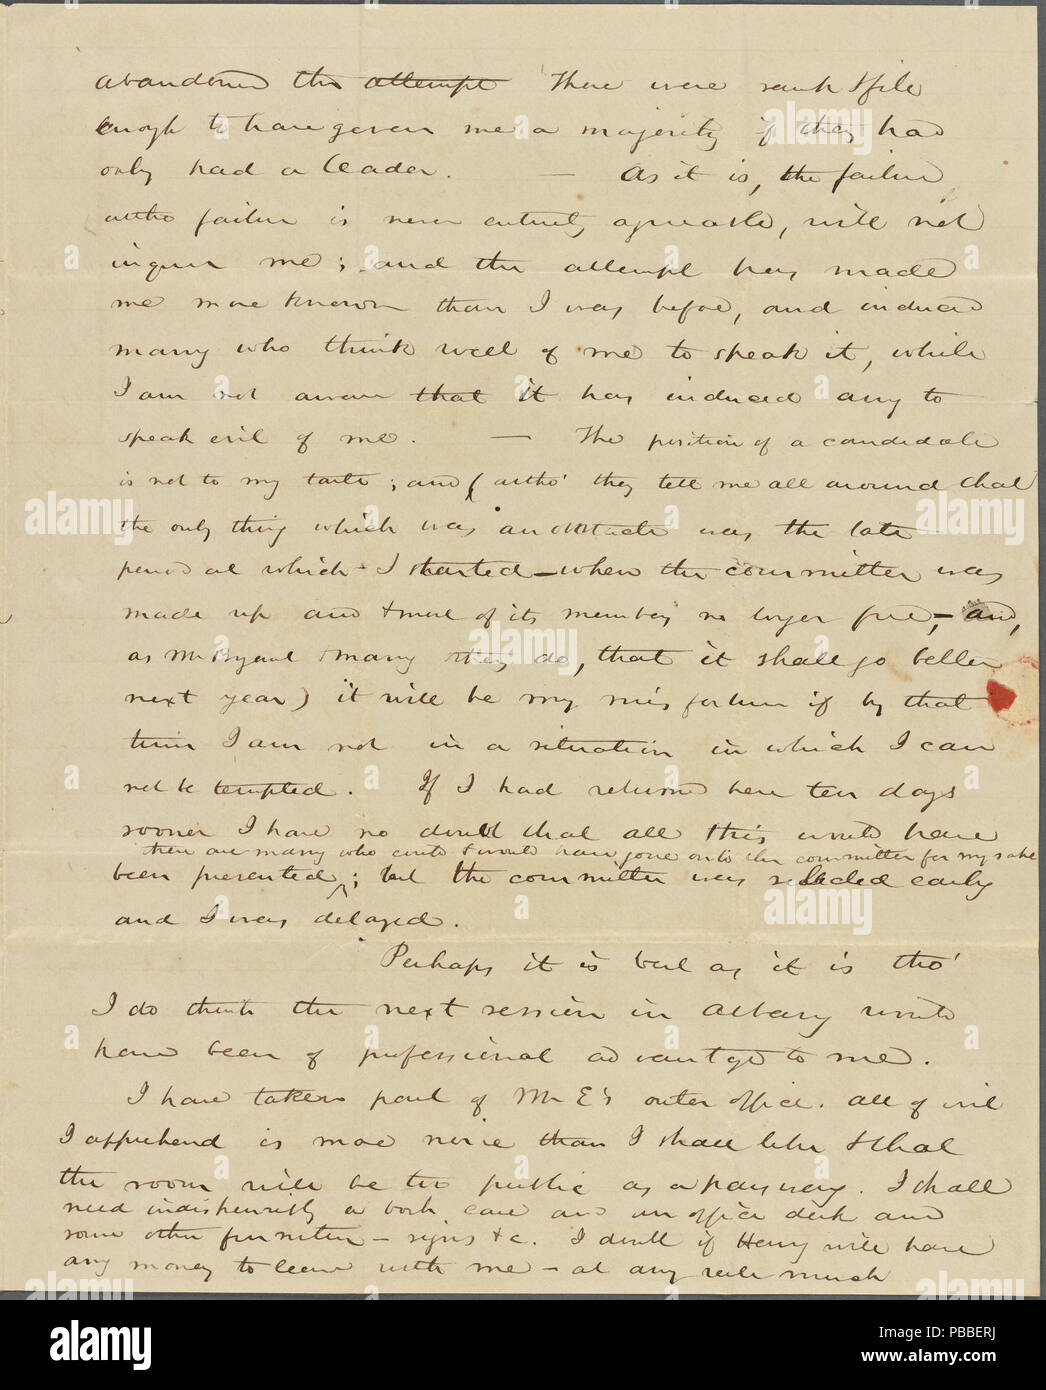 abandoned the attempt There were rank & file
enough to have given me a majority if they had
only had a leader. — As it is, the failure
altho failure is never entirely agreeable, will not
injure me; and the attempt has made
me more known than I was before, and induced
many who think well of me to speak it, while
I am not aware that it has induced any to
speak evil of me. — The position of a candidate
is not to my taste; and (altho' they tell me all around that
the only thing which was an obstacle was the late
period at which I started — when the committee was
made up and most of its members no longer free, — and,
as Mr Bryant & many they do, that it shall go better
next year) it will be my misfortune if by that
time I am not in a situation in which I can
not be tempted. If I had returned here ten days
sooner I have no doubt that all this would have
there are many who could & would have gone onto the committee for my sake
been prevented; but the committee was selected early
and I was delayed.
Perhaps it is best as it is tho'
I do think the next session in Albany would
have been of professional advantage to me.
I have taken part of Mr E's outer office. All of evil
I apprehend is more noise than I shall like & that
the room will be too public as a passway. I shall
need indispensibly a book case and an office desk and
some other furniture — signs &c. I doubt if Henry will have
any money to leave with me — at any rate much
alamy
Image ID: PBBERJ
www.alamy.com